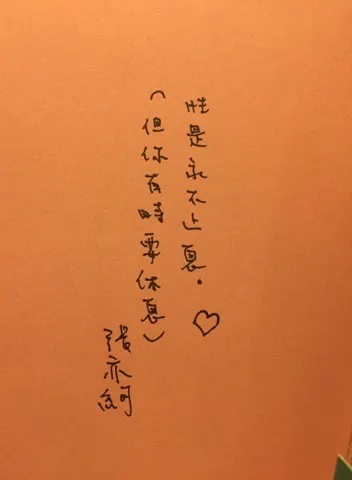 性是永不止息。♡
（但你有時要休息）
張亦絢